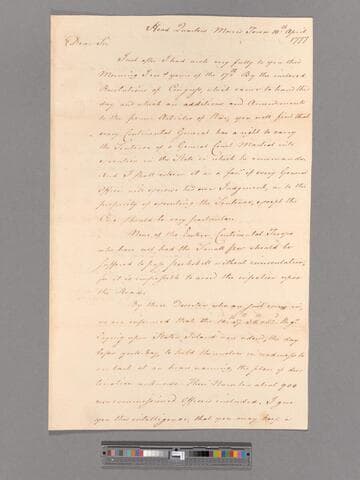 Head Quarters Morris Town 18th April
1777
Dear Sir
Just after I had wrote very fully to you this
Morning I recd yours of the 17th. By the inclosed
Resolutions of Congress, which came to hand this
day and which are additions and Amendments
to the former Articles of War, you will find that
every Continental General has a right to carry
the Sentence of a General Court Martial into
execution in the State in which he commands
And I shall esteem it as a favr if every General
Officer will exercise his own Judgment, as to the
propriety of executing the Sentence, except the
Case should be very particular.
None of the Eastern Continental Troops
who have not had the Small pox should be
suffered to pass Peekskill without innoculation,
for it is impossible to avoid the infection upon
the Road.
By three Deserters who are just come in,
we are informed that the
laying upon Staten Island were ordered, the day
before yesterday, to hold themselves in readiness to
embark at an hours warning the place of des-
tination unknown. Their Number about 900
noncommissioned Officers included. I give
you this intelligence, that you may keep a